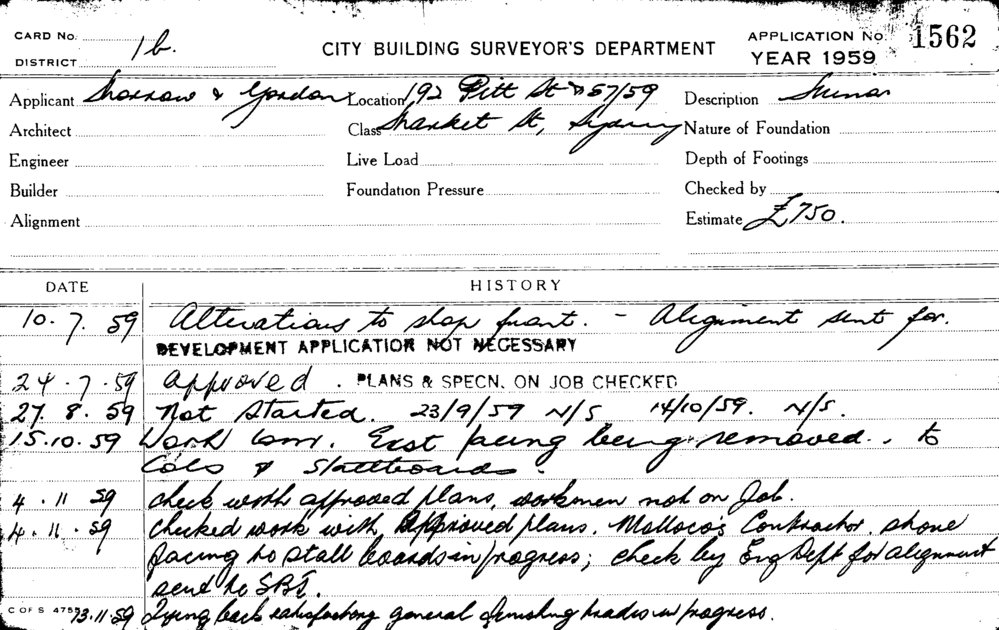 CARD No. 1b.
DISTRICT
CITY BUILDING SURVEYOR'S DEPARTMENT
APPLICATION No. 1562
YEAR 1959
Applicant & Gordon Location 192 Pitt St & 57/59 Description
Architect Class Market St, Sydney Nature of Foundation
Engineer Live Load Depth of Footings
Builder Foundation Pressure Checked by
Alignment Estimate £750.
DATE HISTORY
10.7.59 Alterations to shop front. - Alignment sent for.
DEVELOPMENT APPLICATION NOT NECESSARY
24.7.59 Approved. PLANS & SPECN. ON JOB CHECKED
27.8.59 Not Started. 23/9/59 N/S 14/10/59. N/S.
15.10.59 Work com. Exst facing being removed. to
Cols & Stallboards.
4.11.59 check with approved plans, workmen not on Job.
4.11.59 Checked work with Approved plans. Melloco's Contractor. stone
facing to stall boards in progress; check by Eng Dept for alignment
send to SBI.
C OF S 4755 13.11.59 Tying back satisfactory general finishing trades in progress.